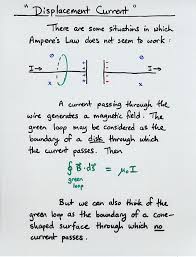 "Displacement Current"
There are some situations in which
Ampere's Law does not seem to work:
I→ I→
A current passing through the
wire generates a magnetic field. The
green loop may be considered as the
boundary of a disk through which
the current passes. Then
∮ B⃗·ds⃗ = μ₀I
green
loop
But we can also think of the
green loop as the boundary of a cone-
shaped surface through which no
current passes.